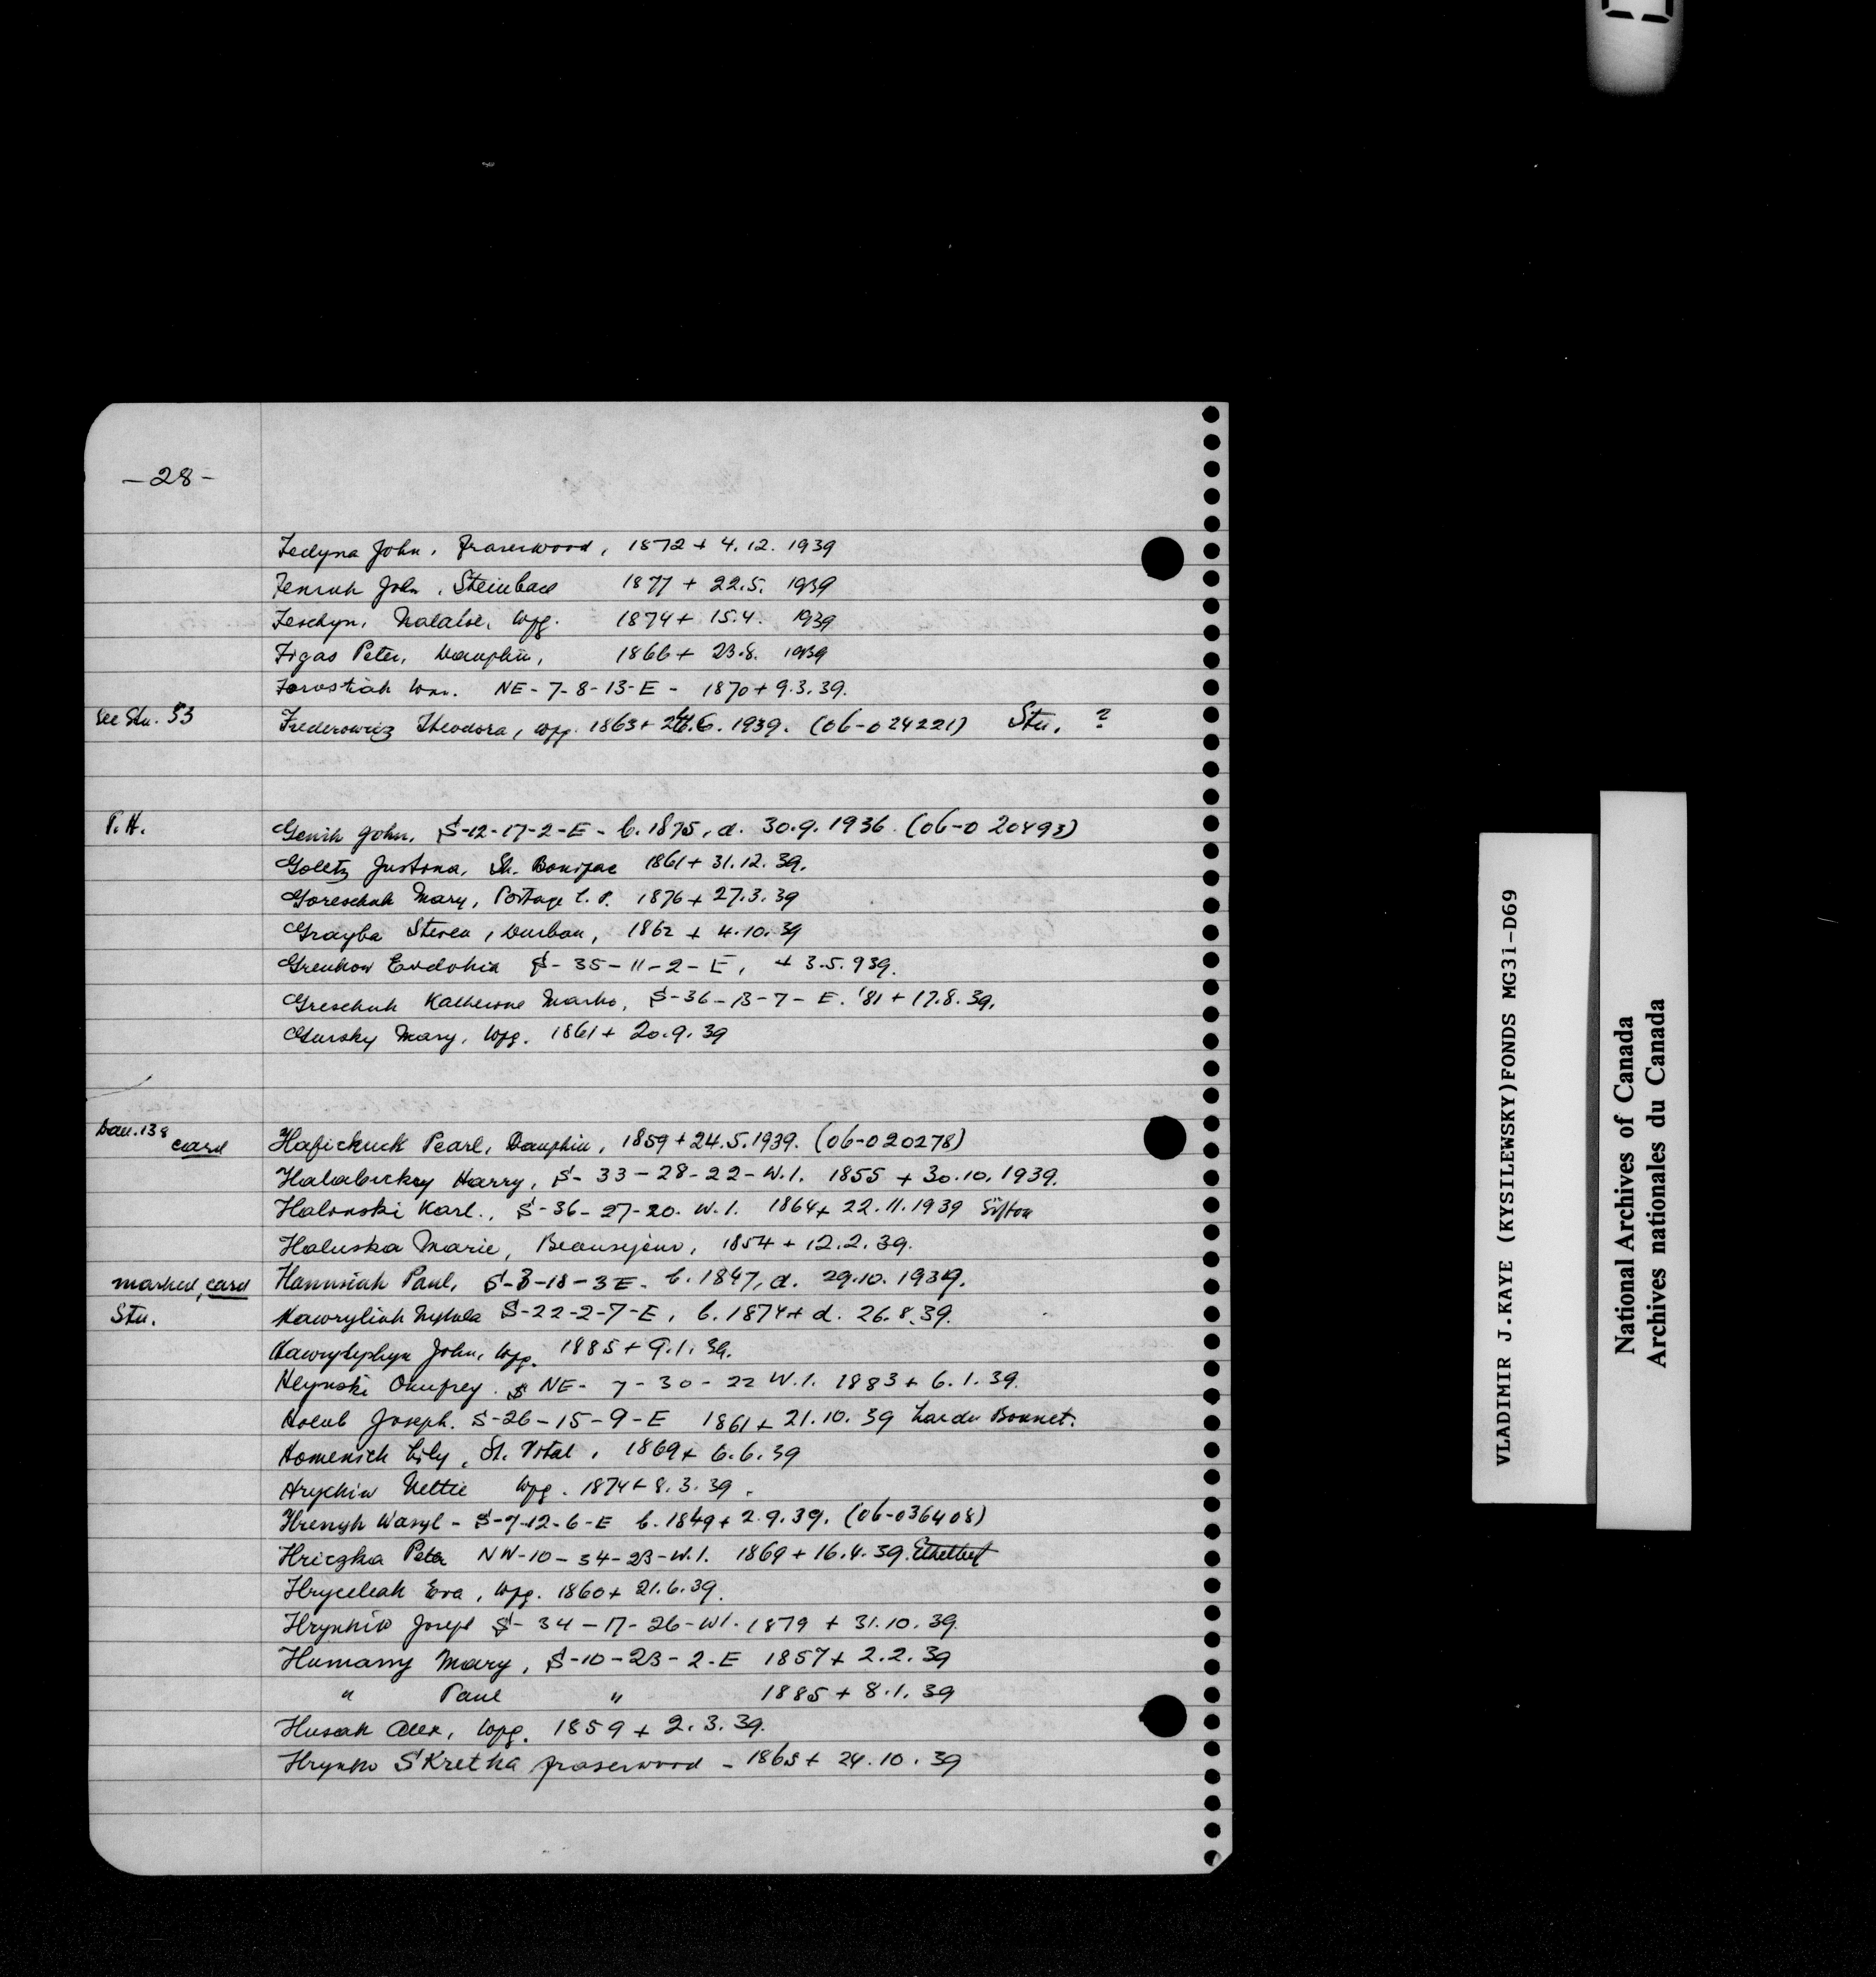 -28-
Fedyna John, Fraserwood, 1872 + 4.12. 1939
Fenruk John, Steinbach 1877 + 22.5. 1939
Feschyn, Natalie, Wpg. 1874 + 15.4. 1939
Figas Peter, Dauphin, 1866 + 23.8. 1939
Forostiak Wm. NE-7-8-13-E - 1870 + 9.3.39.
see Stu. 53 Frederowicz Theodora, Wpg. 1863 + .6.1939. (06-024221) Stu. ?
P.H. Genik John, S-12-17-2-E - b. 1875, d. 30.9.1936. (06-020493)
Goletz Justina, St. Boniface 1861 + 31.12.39.
Goreschuk Mary, Portage l. P. 1876 + 27.3.39
Grayba Steven, Durban, 1862 + 4.10.39
Grenkow Eudokia S-35-11-2-E, + 3.5.939.
Greschuk Katherine Marko, S-36-13-7-E. '81 + 17.8.39.
Gursky Mary, Wpg. 1861 + 20.9.39
Dau. 138 card Hafichuck Pearl, Dauphin, 1859 + 24.5.1939. (06-020278)
Halabuckry Harry, S-33-28-22-W.1. 1855 + 30.10.1939.
Halonski Karl., S-36-27-20. W.1. 1864 + 22.11.1939 Sifton
Haluska Marie, Beausejour, 1854 + 12.2.39.
marked, card Hannusiak Paul, S-3-18-3E - b. 1847, d. 29.10.1939.
Stu. Hawryliuk Mykola S-22-2-7-E, b. 1874 + d. 26.8.39.
John, Wpg. 1885 + 9.1.39.
Hlynski Onufrey. S NE-7-30-22 W.1. 1883 + 6.1.39.
Holub Joseph. S-26-15-9-E 1861 + 21.10.39 Lac du Bonnet.
Homenick Lily, St. Vital, 1869 + 6.6.39
Hrychiw Nettie Wpg. 1874 + 8.3.39.
Hrenyk Wasyl - S-7-12-6-E b. 1849 + 2.9.39. (06-036408)
Hriczka Peter NW-10-34-23-W.1. 1869 + 16.4.39. Ethelbert
Hryceliak Eva, Wpg. 1860 + 21.6.39.
Hrynkiw Joseph S-34-17-26-W1. 1879 + 31.10.39.
Humanny Mary, S-10-23-2-E 1857 + 2.2.39
" Paul " 1885 + 8.1.39
Husak Alex, Wpg. 1859 + 2.3.39.
Hrynko S Kretka Fraserwood - 1865 + 24.10.39
VLADIMIR J.KAYE (KYSILEWSKY)FONDS MG31-D69
National Archives of Canada
Archives nationales du Canada